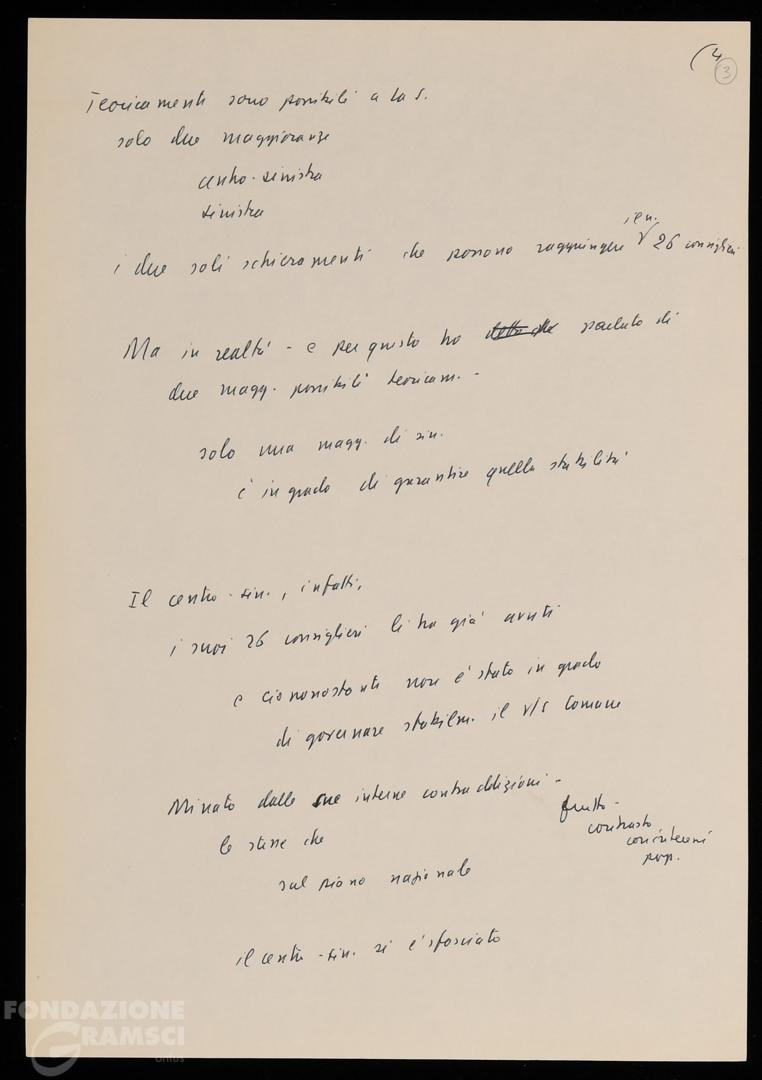 (4
3
Teoricamente sono possibili a La S.
solo due maggioranze
centro-sinistra
sinistra
i due soli schieramenti che possono raggiungere i 26 consiglieri
Ma in realtà - e per questo ho parlato di
due magg. possibili teoricam. -
solo una magg. di sin.
è in grado di garantire quella stabilità
Il centro-sin., infatti,
i suoi 26 consiglieri li ha già avuti
e ciononostante non è stato in grado
di governare stabilm. il v/s Comune
Minato dalle sue interne contraddizioni -
frutto -
contrasto
con interessi
pop.
le stesse che
sul piano nazionale
il centro-sin. si è sfasciato
FONDAZIONE
GRAMSCI
onlus